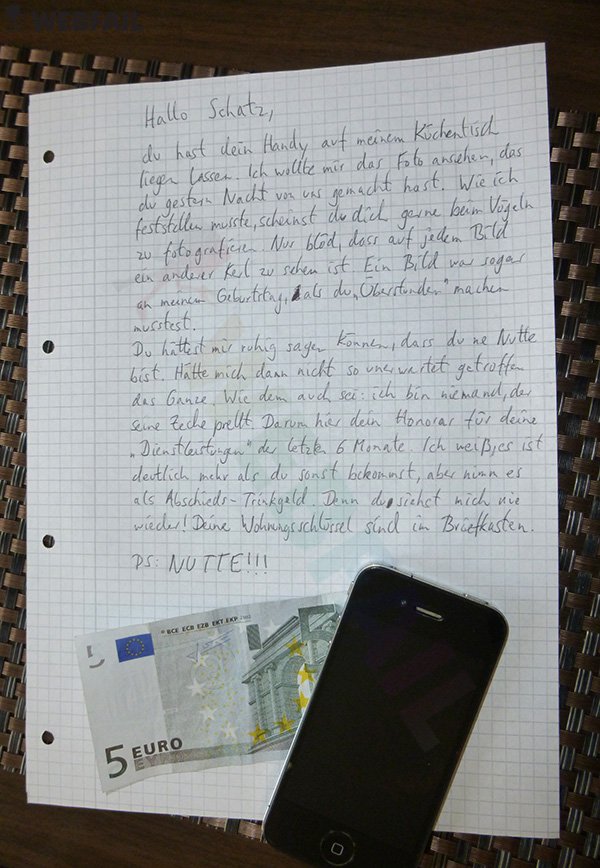 WEBFAIL
Hallo Schatz,
du hast dein Handy auf meinem Küchentisch
liegen lassen. Ich wollte mir das Foto ansehen, das
du gestern Nacht von uns gemacht hast. Wie ich
feststellen musste, scheinst du dich gerne beim Vögeln
zu fotografieren. Nur blöd, dass auf jedem Bild
ein anderer Kerl zu sehen ist. Ein Bild war sogar
an meinem Geburtstag, als du „Überstunden" machen
musstest.
Du hättest mir ruhig sagen können, dass du ne Nutte
bist. Hätte mich dann nicht so unerwartet getroffen
das Ganze. Wie dem auch sei: ich bin niemand, der
seine Zeche prellt. Darum hier dein Honorar für deine
„Dienstleistungen" der letzten 6 Monate. Ich weiß, es ist
deutlich mehr als du sonst bekommst, aber nimm es
als Abschieds-Trinkgeld. Denn du siehst mich nie
wieder! Deine Wohnungsschlüssel sind im Briefkasten.
PS: NUTTE!!!
BCE ECB EZB EKT EKP 2002
5 EURO
ΕΥΡΩ